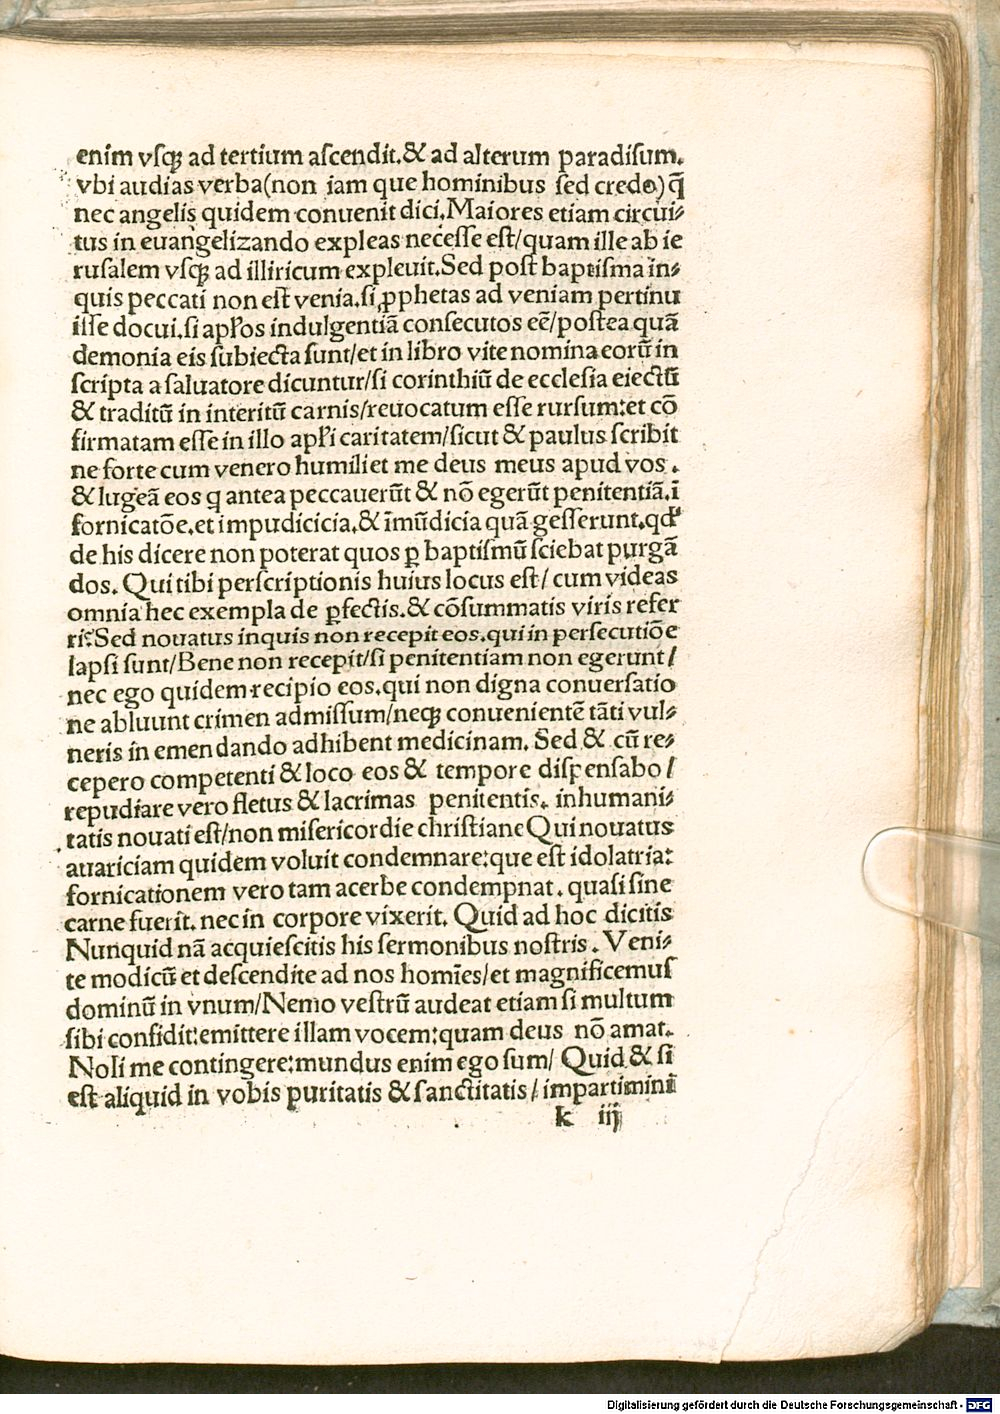 enim vſqꝫ ad tertium aſcendit.& ad alterum paradiſum.
vbi audias verba(non iam que hominibus ſed credo) q̄
nec angelis quidem conuenit dici.Maiores etiam circui⸗
tus in euangelizando expleas neceſſe eſt/quam ille ab ie
ruſalem vſqꝫ ad illiricum expleuit.Sed poſt baptiſma in⸗
quis peccati non eſt venia.ſi ꝓphetas ad veniam pertinu
iſſe docui.ſi apl'os indulgentiā conſecutos eē/poſtea quā
demonia eis ſubiecta ſunt/et in libro vite nomina eorū in
ſcripta a ſaluatore dicuntur/ſi corinthiū de eccleſia eiectū
& traditū in interitū carnis/reuocatum eſſe rurſum:et cō
firmatam eſſe in illo apl'i caritatem/ſicut & paulus ſcribit
ne forte cum venero humiliet me deus meus apud vos .
& lugeā eos q antea peccauerūt & nō egerūt penitentiā.ī
fornicatōe.et impudicicia.& īmūdicia quā geſſerunt.qd'
de his dicere non poterat quos ꝑ baptiſmū ſciebat purgā
dos. Qui tibi perſcriptionis huius locus eſt/ cum videas
omnia hec exempla de ꝑfectis.& cōſummatis viris refer
ri:Sed nouatus inquis non recepit eos.qui in perſecutiōe
lapſi ſunt/Bene non recepit/ſi penitentiam non egerunt/
nec ego quidem recipio eos.qui non digna conuerſatio
ne abluunt crimen admiſſum/neqꝫ conuenientē tāti vul⸗
neris in emendando adhibent medicinam. Sed & cū re⸗
cepero competenti & loco eos & tempore diſpenſabo/
repudiare vero fletus & lacrimas penitentis. inhumani⸗
tatis nouati eſt/non miſericordie chriſtiane Qui nouatus
auariciam quidem voluit condemnare:que eſt idolatria:
fornicationem vero tam acerbe condempnat. quaſi ſine
carne fuerit. nec in corpore vixerit. Quid ad hoc dicitis
Nunquid nā acquieſcitis his ſermonibus noſtris . Veni⸗
te modicū et deſcendite ad nos homīes/et magnificemuſ
dominū in vnum/Nemo veſtrū audeat etiam ſi multum
ſibi confidit:emittere illam vocem:quam deus nō amat.
Noli me contingere:mundus enim ego ſum/ Quid & ſi
eſt aliquid in vobis puritatis & ſanctitatis/ impartimini
k iij
Digitalisierung gefördert durch die Deutsche Forschungsgemeinschaft - DFG